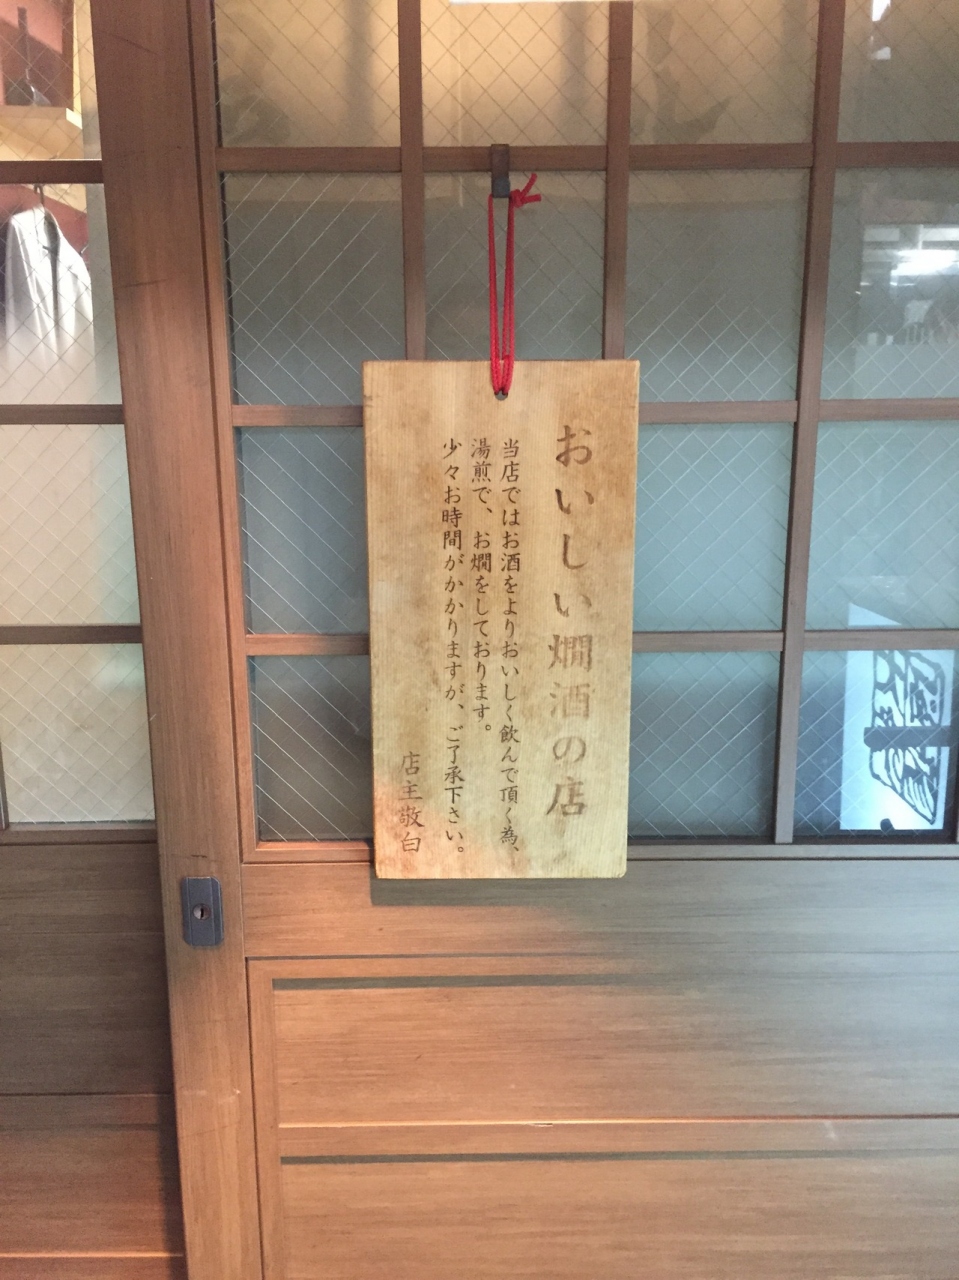 おいしい燗酒の店
当店ではお酒をよりおいしく飲んで頂く為、
湯煎で、お燗をしております。
少々お時間がかかりますが、ご了承下さい。
店主敬白